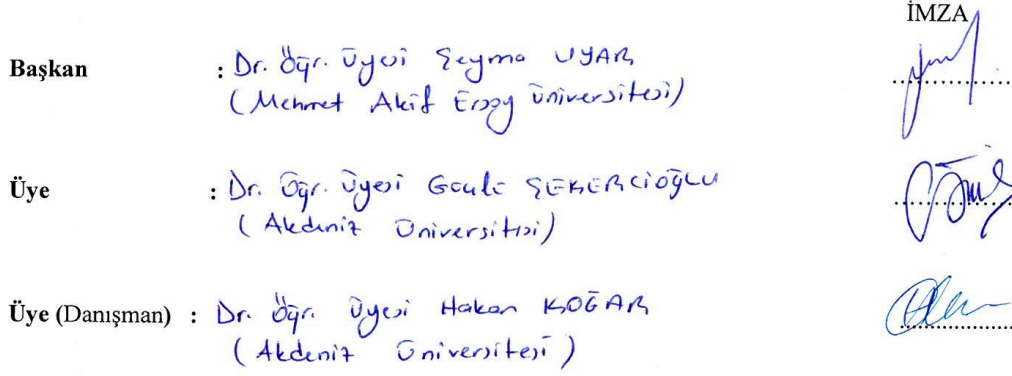 İMZA
Başkan : Dr. Öğr. Üyesi Şeyma UYAR
(Mehmet Akif Ersoy Üniversitesi)
Üye : Dr. Öğr. Üyesi ŞEKERCİOĞLU
(Akdeniz Üniversitesi)
Üye (Danışman) : Dr. Öğr. Üyesi Hakan KOĞAR
(Akdeniz Üniversitesi)